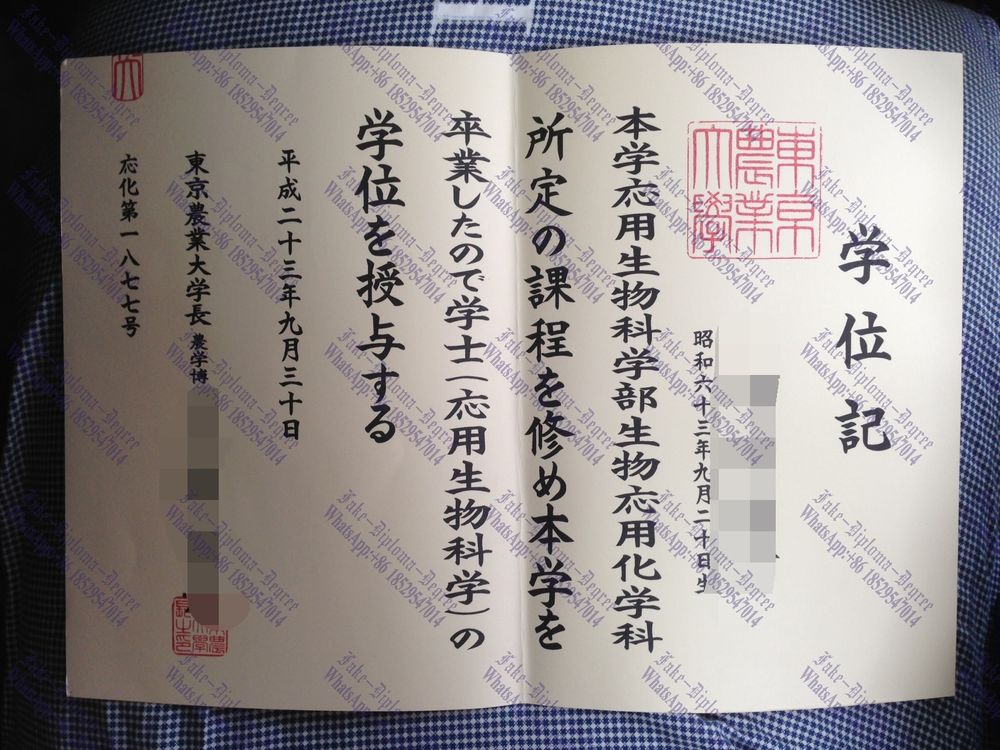 学位記
東京農業大學
昭和六十三年九月二十日生
本学応用生物科学部生物応用化学科
所定の課程を修め本学を
卒業したので学士(応用生物科学)の
学位を授与する
平成二十三年九月三十日
東京農業大学長 農学博
応化第一八七七号
Fake-Diploma-Degree
WhatsApp:+86 18529547014